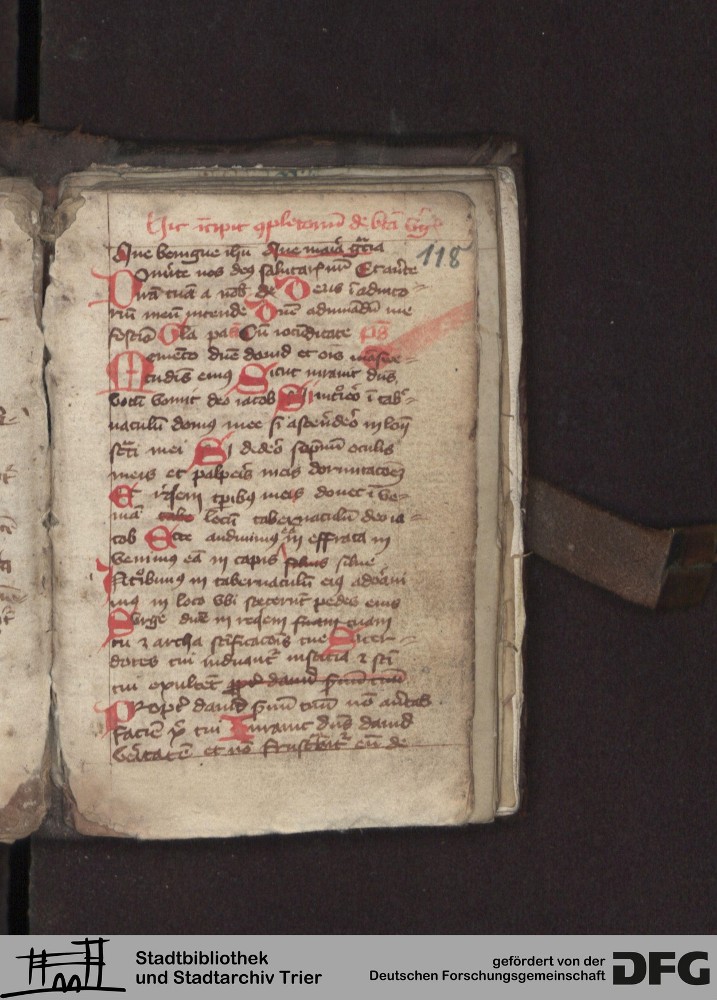 Hic incipit gpletoriu de bta v͛g͛
Aue benigne ihu Aue maria gracia
118
Conu͛te nos deꝰ salutar͛ nr͛ Et au͛te
iram tuā a nob͛ de Deus ī adiuto=
riū meū intende Dne adiuuandū me
festīa Gla pa Cū iocūditate ps
Memēto dne dauid et oīs māsue=
tudīs eius Sicut iurauit dno
votū vouit deo iacob Si introiero ī tab͛=
naculū domus mee si ascēdero in lectū
strati mei Si dedero sopnū oculis
meis et palpebris meis dormitacoeȝ
Et reqem tpibꝰ meis donec īue=
niā locū tabernaculū deo ia=
cob Ecce audiuimus eā in effrata in
venimus eā in capis silue
Introibimus in tabernaculū eiꝰ adorabi
mꝰ in loco vbi steterūt pedes eius
Surge dne in reqem tuam
tu ⁊ archa sctificacois tue Sacer=
dotes tui induant͛ iusticia ⁊ sci
tui exultēt
Propt͛ dauid s͛uū tuū nō au͛tas
faciē x͛ tui Iurauit dns dauid
veritatē et nō frustrabit͛ eū de
Stadtbibliothek
und Stadtarchiv Trier
gefördert von der
Deutschen Forschungsgemeinschaft
DFG